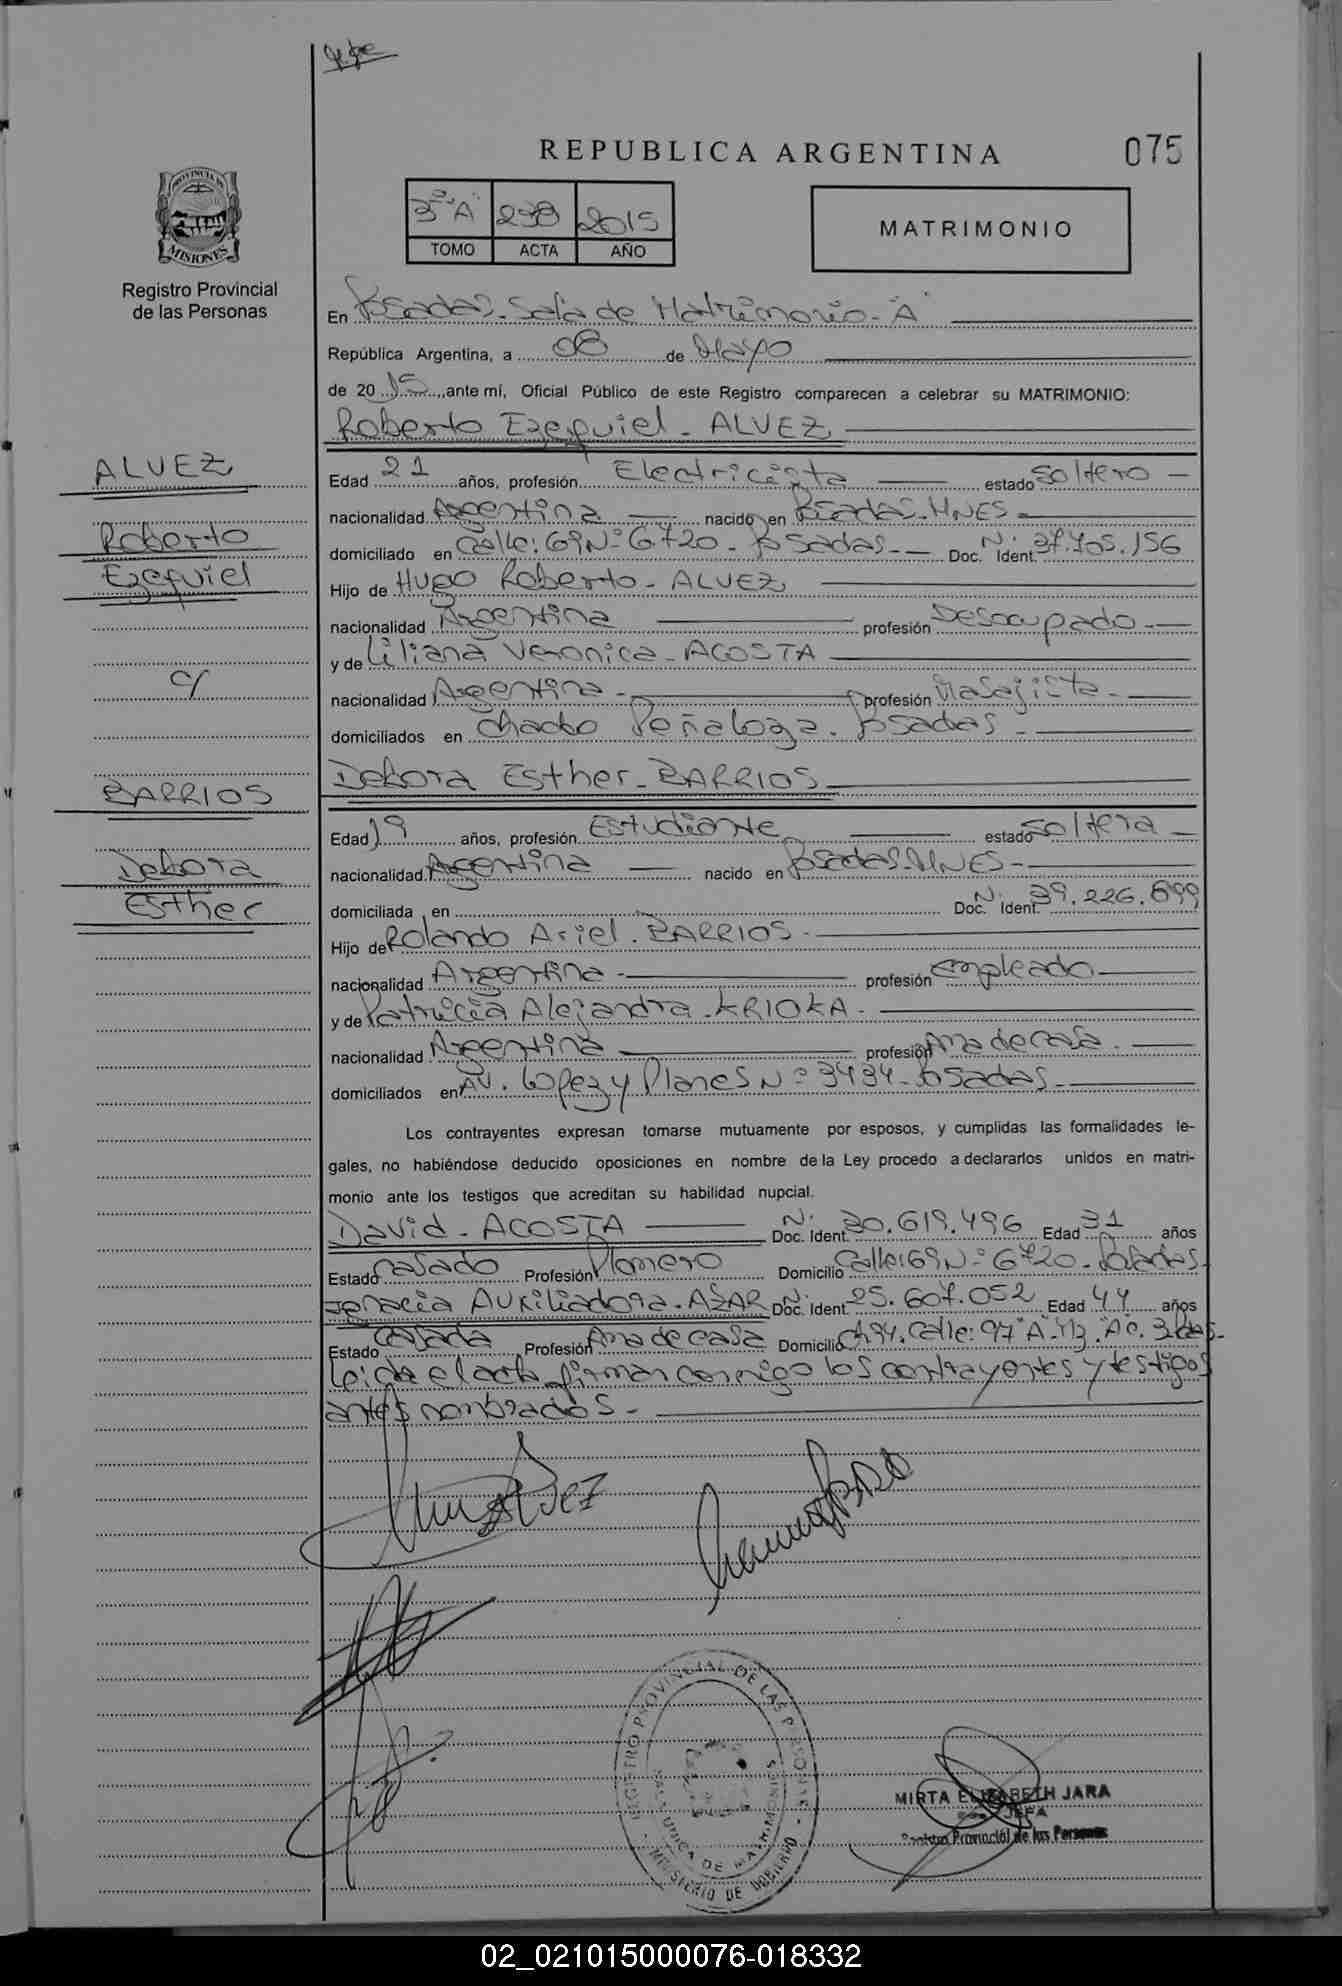 REPUBLICA ARGENTINA
075
3º "A" 238 2015
TOMO ACTA AÑO
MATRIMONIO
PROVINCIA DE
MISIONES
Registro Provincial
de las Personas
En Posadas-Sala de Matrimonio-"A"
República Argentina, a 08 de Mayo
de 2015, ante mí, Oficial Público de este Registro comparecen a celebrar su MATRIMONIO:
Roberto Ezequiel - ALVEZ
ALVEZ
Roberto
Ezequiel
c/
BARRIOS
Debora
Esther
Edad 21 años, profesión Electricista estado soltero -
nacionalidad Argentina nacido en Posadas-MNES-
domiciliado en Calle: 69 Nº 6720 - Posadas - Doc. Ident. Nº 37.705.156
Hijo de Hugo Roberto - ALVEZ
nacionalidad Argentina profesión Desocupado -
y de Liliana Veronica - ACOSTA
nacionalidad Argentina - profesión Masajista -
domiciliados en Chacho Peñaloza. Posadas -
Debora Esther - BARRIOS
Edad 19 años, profesión Estudiante estado soltera -
nacionalidad Argentina nacido en Posadas-MNES-
domiciliada en Doc. Ident. Nº 39.226.899
Hijo de Rolando Ariel. BARRIOS -
nacionalidad Argentina - profesión empleado
y de Patricia Alejandra - KRIOKA -
nacionalidad Argentina profesión Ama de casa. -
domiciliados en AV. Lopez y Planes Nº 3434 - Posadas -
Los contrayentes expresan tomarse mutuamente por esposos, y cumplidas las formalidades le-
gales, no habiéndose deducido oposiciones en nombre de la Ley procedo a declararlos unidos en matri-
monio ante los testigos que acreditan su habilidad nupcial.
David - ACOSTA Doc. Ident. Nº 30.619.496 Edad 31 años
Estado casado Profesión Plomero Domicilio Calle: 69 Nº 6720 - Posadas
Auxiliadora - AZAR Doc. Ident. Nº 25.607.052 Edad 44 años
Estado casada Profesión Ama de casa Domicilio Ch 94. Calle: 97 "A"
Leida el acta firman conmigo los contrayentes y testigos
antes nombrados -
REGISTRO PROVINCIAL DE LAS PERSONAS
SALA UNICA DE MATRIMONIOS
MINISTERIO DE GOBIERNO
MIRTA ELIZABETH JARA
JEFA
Registro Provincial de las Personas
02_021015000076-018332